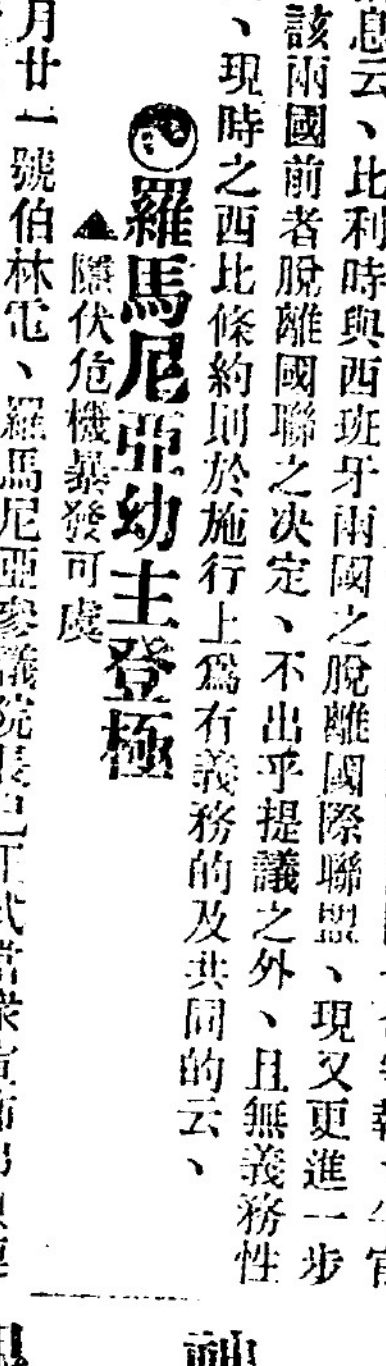 息云、比利時與西班牙兩國之脫離國際聯盟、現又更進一步
該兩國前者脫離國聯之决定、不出乎提議之外、且無義務性
、現時之西比條約則於施行上爲有義務的及共同的云、
羅馬尼亞幼主登極
▲隱伏危機暴發可虞
月廿一號伯林電、羅馬尼亞參議院長已正式當衆宣佈